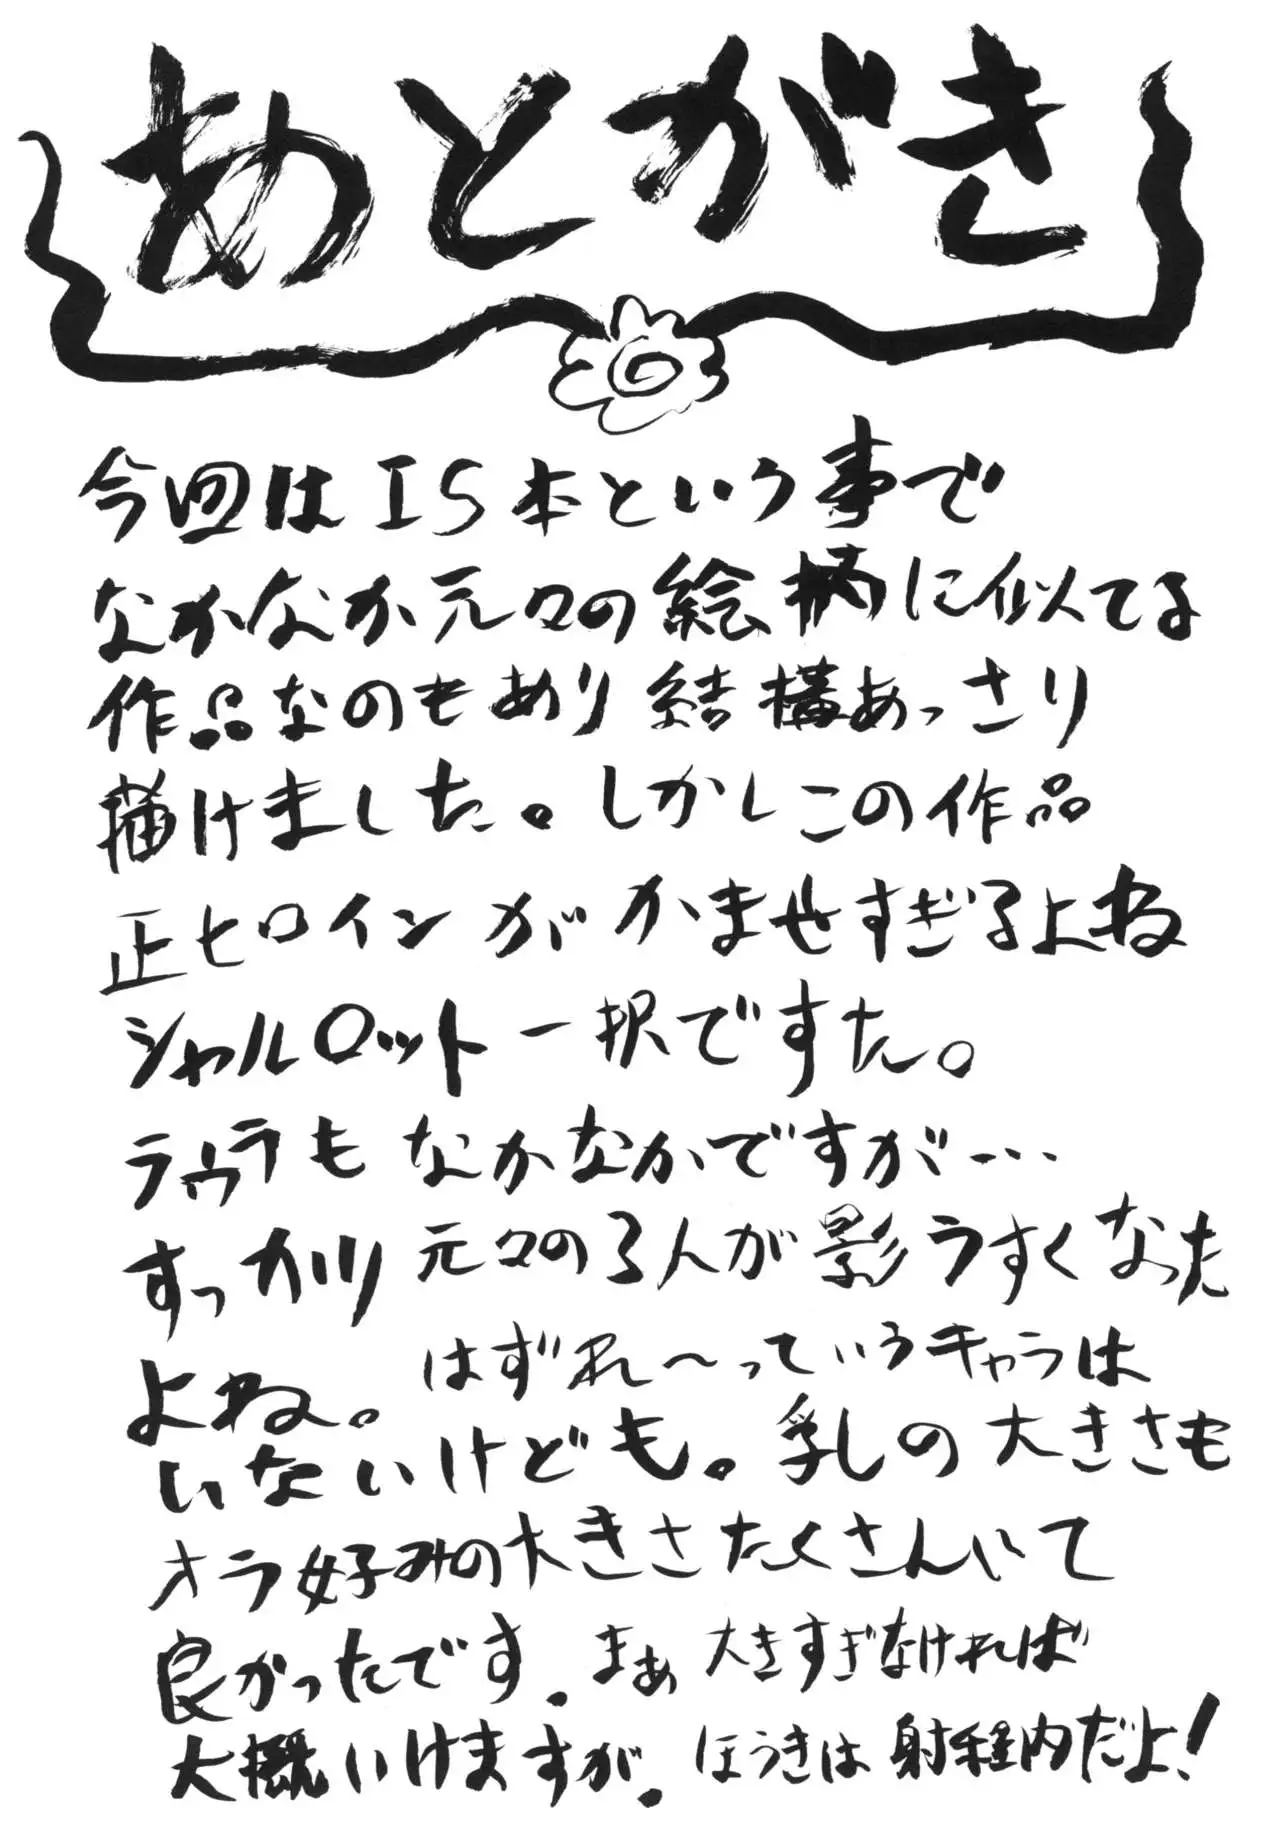 あとがき
今回はIS本という事で
なかなか元々の絵柄に似てる
作品なのもあり結構あっさり
描けました。しかしこの作品
正ヒロインがかませすぎるよね
シャルロット一択ですた。
ラウラもなかなかですが…
すっかり元々の3人が影うすくなった
よね。はずれ〜っていうキャラは
いないけども。乳しの大きさも
オラ好みの大きさたくさんいて
良かったです。まぁ大きすぎなければ
大概いけますが。ほうきは射程内だよ!